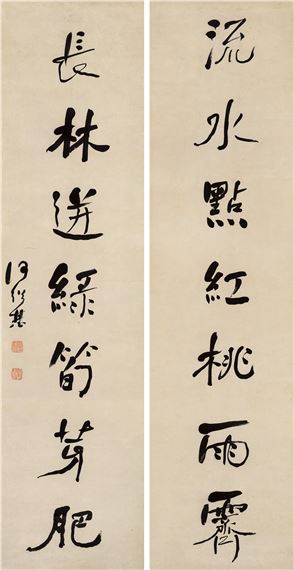 流水點紅桃雨霽
長林迸綠筍芽肥
何紹基